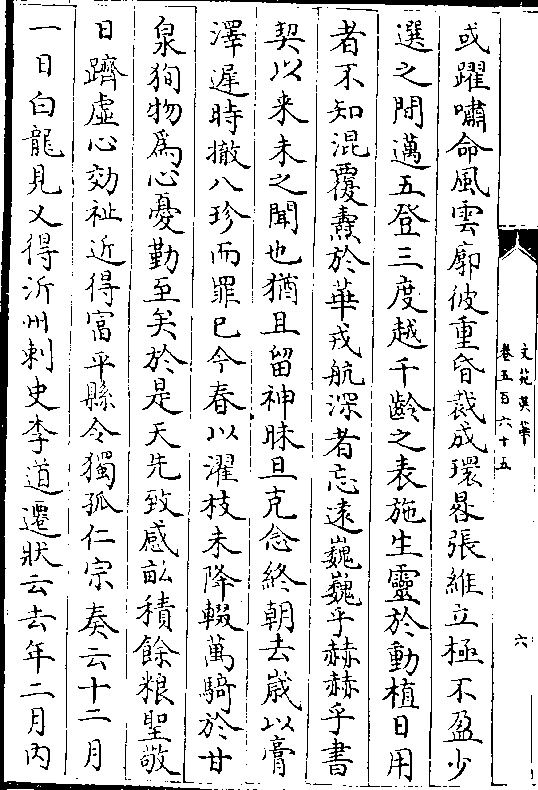 文苑英華
卷五百六十五
六
或躍嘯命風雲廓彼重昏裁成環晷張維立極不盈少
選之間邁五登三度越千齡之表施生靈於動植日用
者不知混覆燾於華戎航深者忘遠巍巍乎赫赫乎書
契以来未之聞也猶且留神昧旦克念終朝去歲以膏
澤遲時撤八珍而罪已今春以濯枝未降輟萬騎於甘
泉狥物為心憂勤至矣於是天先致感畝積餘粮聖敬
日躋虛心効祉近得富平縣令獨孤仁宗奏云十二月
一日白龍見又得沂州刺史李道遷狀云去年二月内